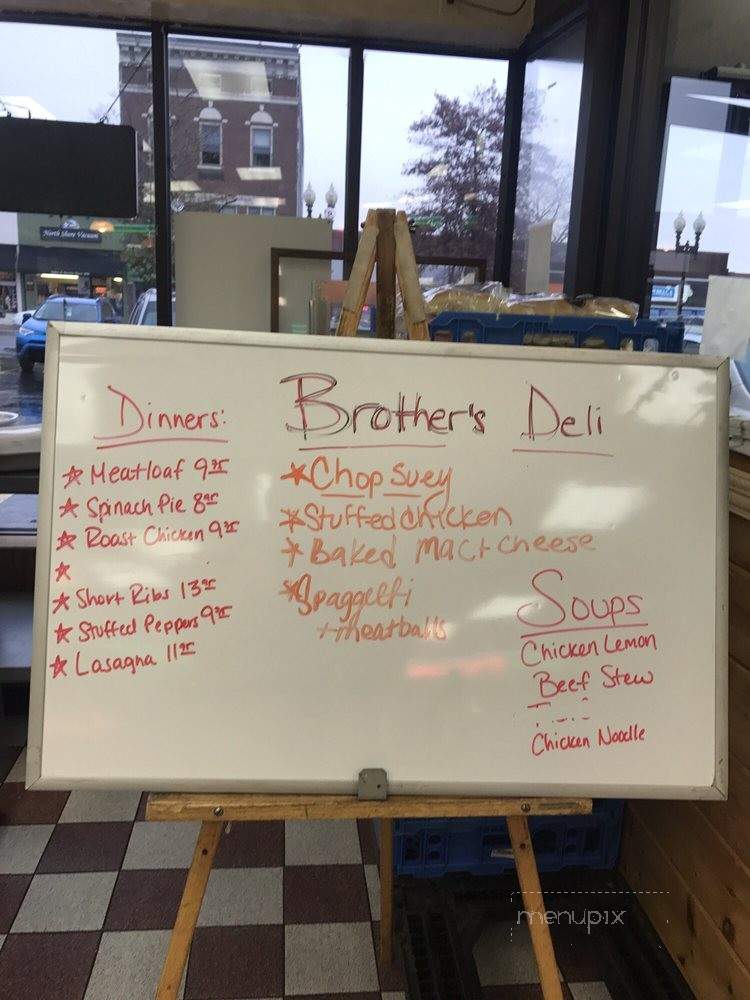 North Shore Vacuum
Brother's Deli
Dinners:
Meatloaf 9.25
Spinach Pie
Roast Chicken
Short Ribs
Stuffed Peppers
Lasagna
Chop Suey
Stuffed chicken
Baked mac + cheese
Spaggetti
+ meatballs
Soups
Chicken Lemon
Beef Stew
Chicken Noodle
menupix